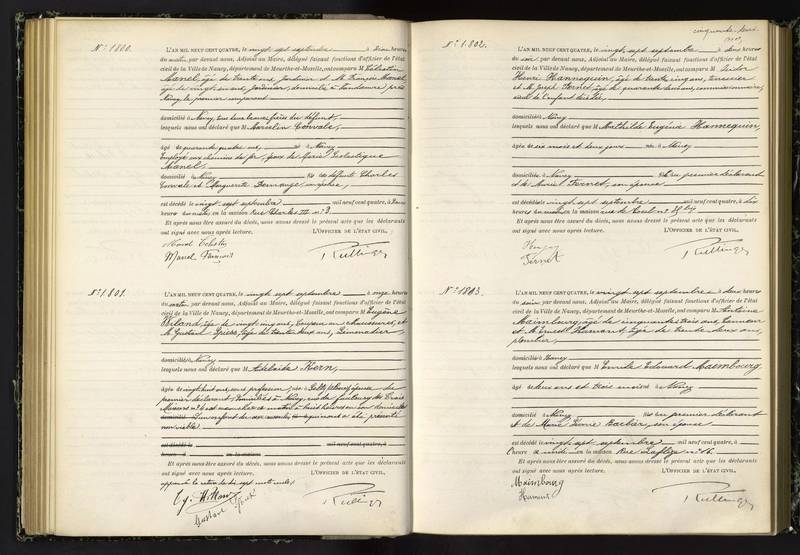 N° 1800.
L'AN MIL NEUF CENT QUATRE, le vingt sept septembre à heures
du matin par devant nous, Adjoint au Maire, délégué faisant fonctions d'officier de l'état
civil de la Ville de Nancy, département de Meurthe-et-Moselle, ont comparu M Célestin
Manel, âgé de trente ans, jardinier et M. François Manel,
âgé de vingt ans, jardinier, domicilié à près
Nancy le premier
domicilié à Nancy, tous deux beaux frères du défunt,
lesquels nous ont déclaré que M Marcelin Convale,
âgé de quarante quatre ans, né à Nancy
Employé aux chemins de fer, époux de Marie Scolastique
Manel,
domicilié à Nancy fils de défunts Charles
Convale et Marguerite
est décédé le vingt sept septembre mil neuf cent quatre, à
heures du matin, en la maison rue Charles III n° 9
Et après nous être assuré du décès, nous avons dressé le présent acte que les déclarants
ont signé avec nous après lecture. L'OFFICIER DE L'ÉTAT CIVIL,
Manel Célestin
Manel François
N° 1801.
L'AN MIL NEUF CENT QUATRE, le vingt sept septembre à onze heures
du matin par devant nous, Adjoint au Maire, délégué faisant fonctions d'officier de l'état
civil de la Ville de Nancy, département de Meurthe-et-Moselle, ont comparu M Eugène
âgé de vingt cinq ans, coupeur en chaussures, et
M Gustave âgé de trente deux ans, limonadier
domiciliés à Nancy
lesquels nous ont déclaré que M Adélaïde Kern,
âgée de vingt huit ans, sans profession, née à épouse du
premier déclarant, domiciliée à Nancy, rue du faubourg des Trois
Maisons n° est accouchée ce matin à huit heures en son domicile
d'un enfant de sexe qui nous a été présenté
non viable
est décédé le mil neuf cent quatre, à
heures en la maison
Et après nous être assuré du décès, nous avons dressé le présent acte que les déclarants
ont signé avec nous après lecture. L'OFFICIER DE L'ÉTAT CIVIL,
Gustave
N° 1802.
L'AN MIL NEUF CENT QUATRE, le vingt sept septembre à deux heures
du soir par devant nous, Adjoint au Maire, délégué faisant fonctions d'officier de l'état
civil de la Ville de Nancy, département de Meurthe-et-Moselle, ont comparu M Isidor
Henri Hannequin, âgé de trente cinq ans, terrassier
et M. Joseph Fernet, âgé de quarante ans, commissionnaire,
de l'enfant
domiciliés à Nancy
lesquels nous ont déclaré que M Mathilde Eugénie Hannequin,
âgée de six mois et deux jours née à Nancy
domicilié à Nancy fille du premier déclarant
et de Marie Fernet, son épouse
est décédée le vingt sept septembre mil neuf cent quatre, à dix
heures du matin en la maison rue de Toul n° bis
Et après nous être assuré du décès, nous avons dressé le présent acte que les déclarants
ont signé avec nous après lecture. L'OFFICIER DE L'ÉTAT CIVIL,
Fernet
N° 1803.
L'AN MIL NEUF CENT QUATRE, le vingt sept septembre à deux heures
du soir par devant nous, Adjoint au Maire, délégué faisant fonctions d'officier de l'état
civil de la Ville de Nancy, département de Meurthe-et-Moselle, ont comparu M Antoine
Maimbourg, âgé de cinquante trois ans, tanneur
et M. Ernest Humant, âgé de trente deux ans,
plombier,
domiciliés à Nancy
lesquels nous ont déclaré que M Emile Edouard Maimbourg
âgé de deux ans et trois mois né à Nancy
domicilié à Nancy fils du premier déclarant
et de Marie Barbier, son épouse
est décédé le vingt sept septembre mil neuf cent quatre, à
heure à midi en la maison Rue Laflize n° 16.
Et après nous être assuré du décès, nous avons dressé le présent acte que les déclarants
ont signé avec nous après lecture. L'OFFICIER DE L'ÉTAT CIVIL,
Maimbourg
Humant